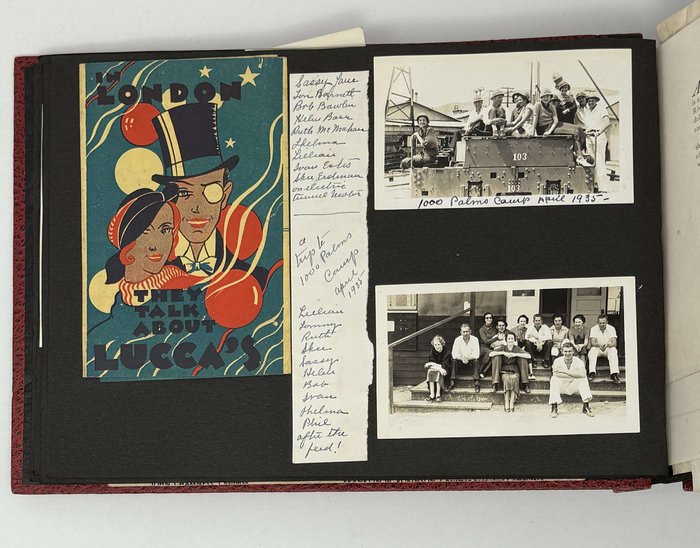 IN
LONDON
THEY
TALK
ABOUT
LUCCA'S
Sassy
Tom Barnett
Bob Bawlin
Helen Barr
Ruth McMahan
Thelma
Lillian
Ivan Estes
Skee Erdman
on electric
tunnel motor
a
trip to
1000 Palms
Camp
April
1935-
Lillian
Tommy
Ruth
Skee
Sassy
Helen
Bob
Ivan
Thelma
Phil
after the
feed!
103
103
1000 Palms Camp April 1935-